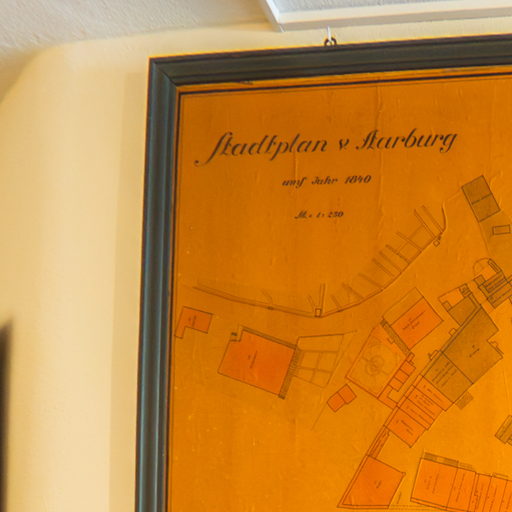 Stadtplan v. Aarburg
ums Jahr 1840
M. 1:250